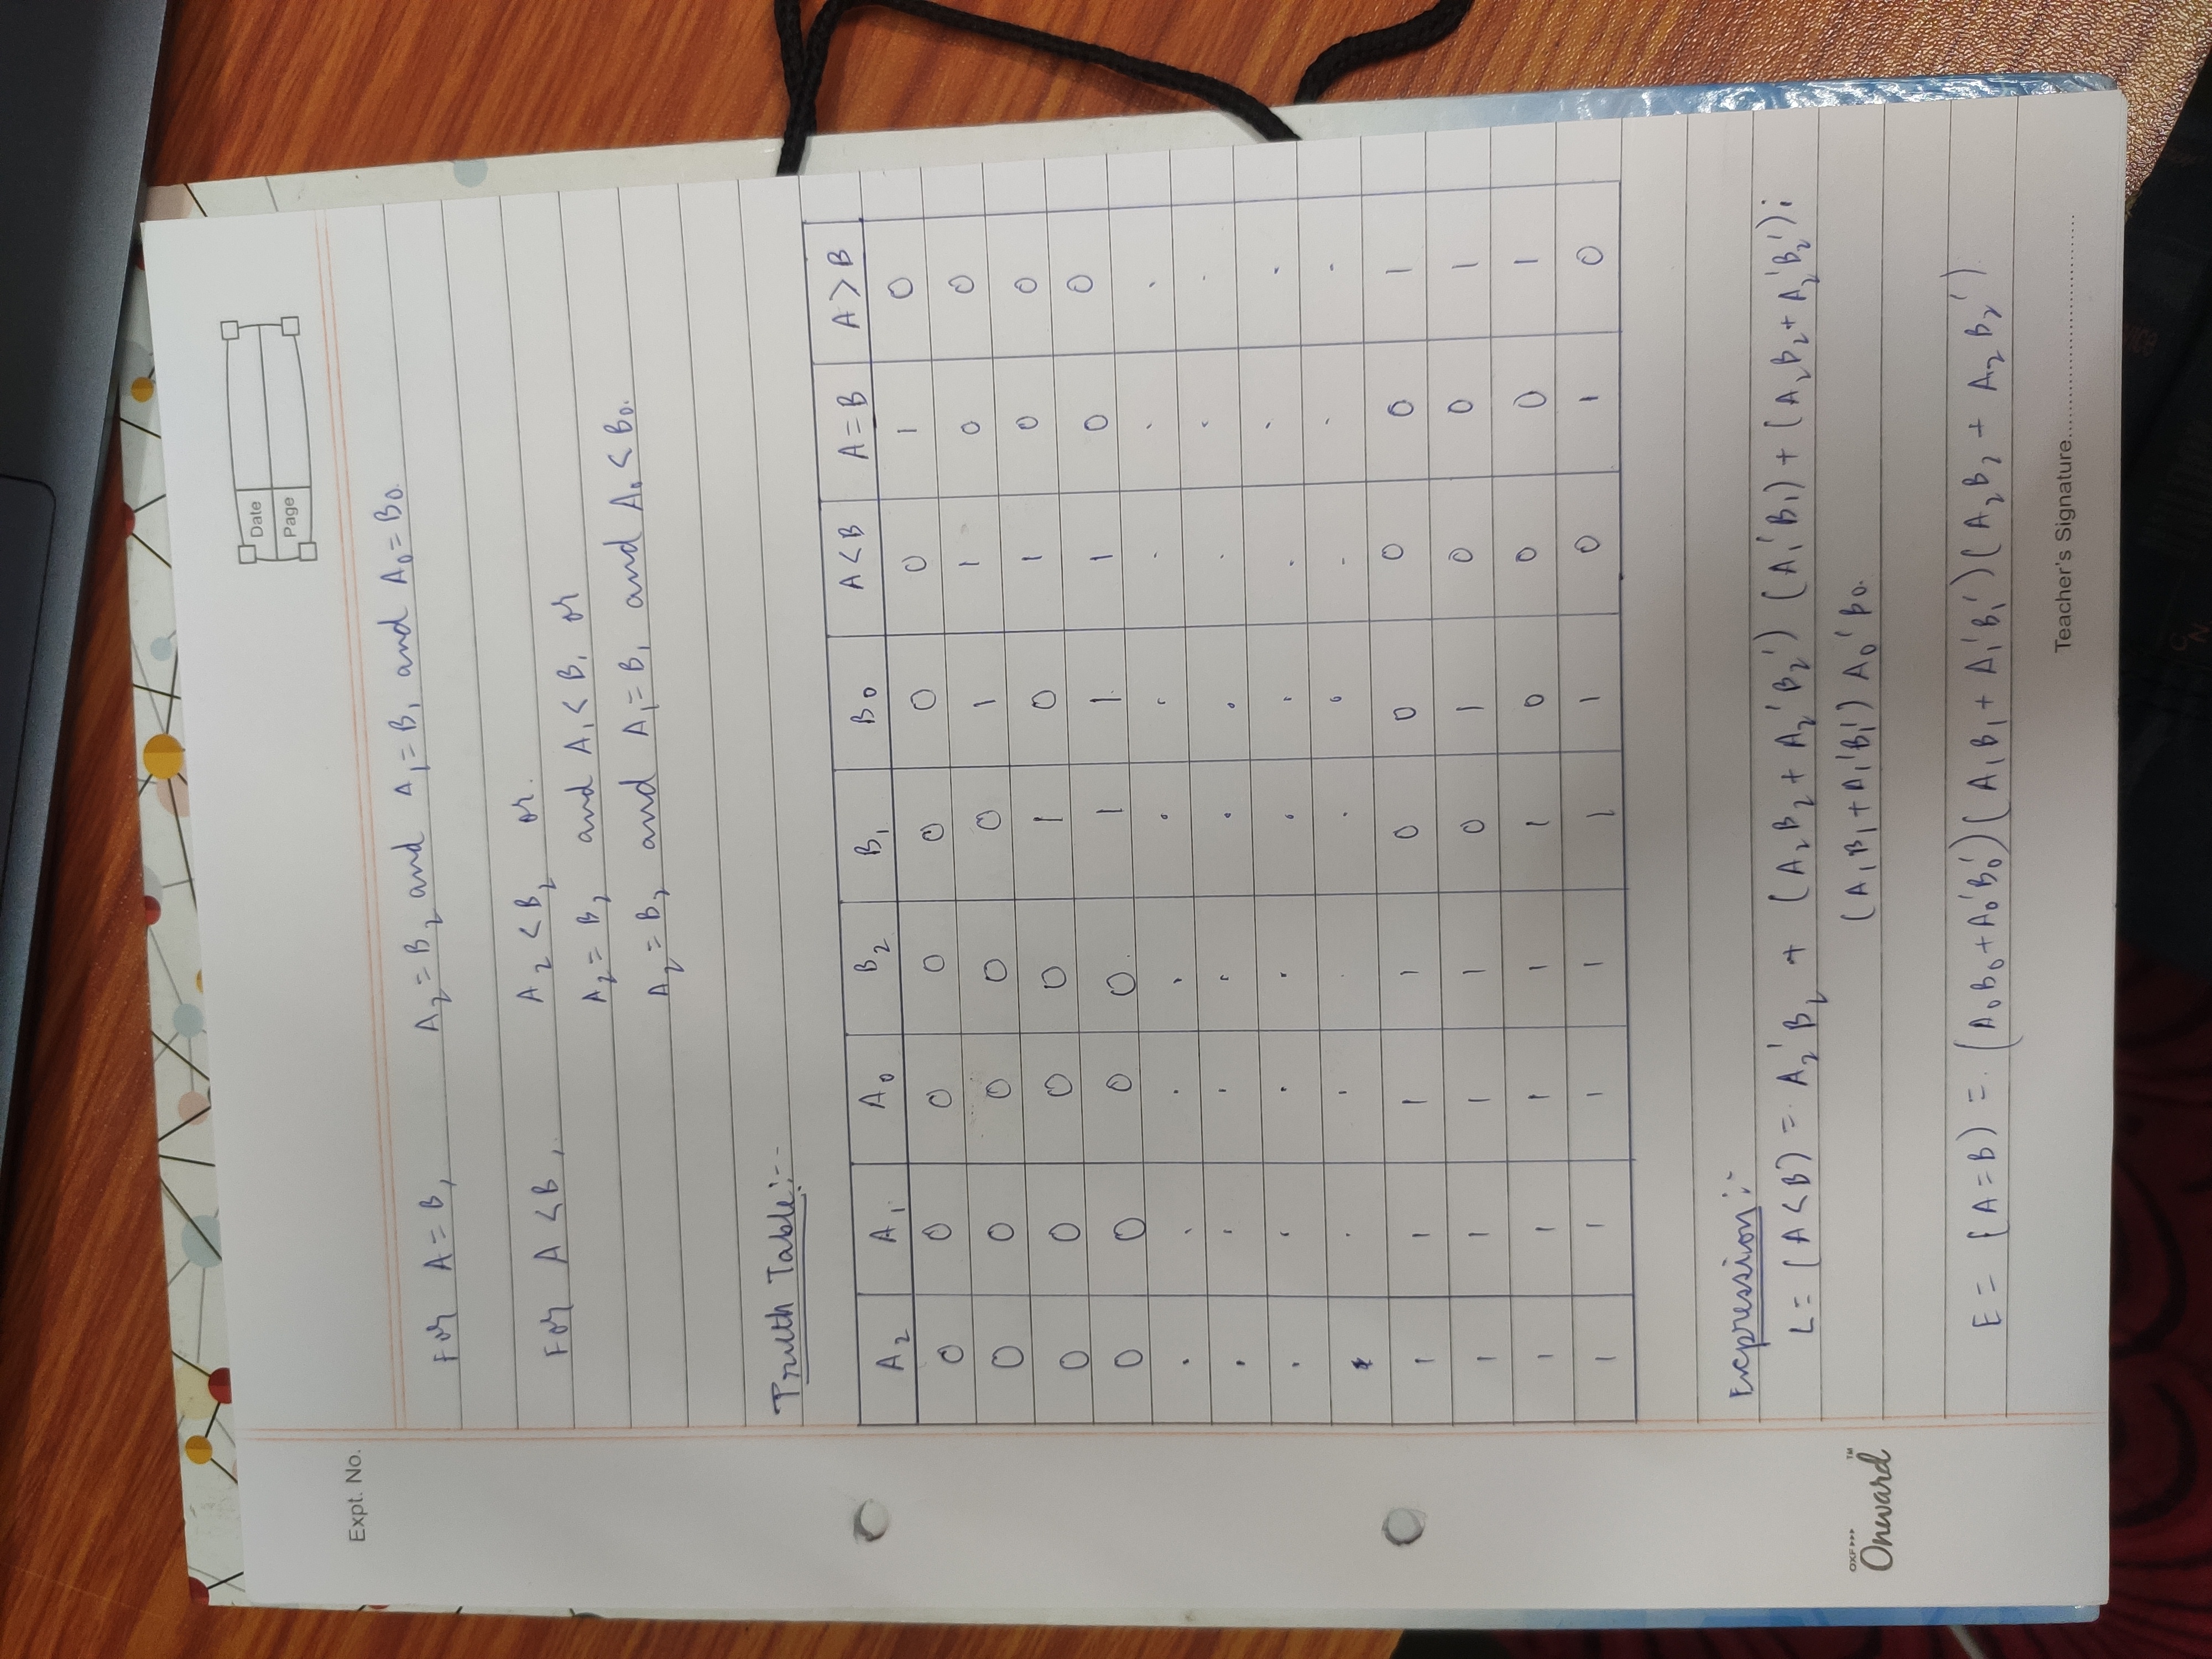 Date
Page
Expt. No.
For A = B, A₂ = B₂ and A₁ = B₁ and A₀ = B₀.
For A < B, A₂ < B₂ or.
A₂ = B₂ and A₁ < B₁ or
A₂ = B₂ and A₁ = B₁ and A₀ < B₀.
Truth Table:--
A₂ A₁ A₀ B₂ B₁ B₀ A<B A=B A>B
0 0 0 0 0 0 0 1 0
0 0 0 0 0 1 1 0 0
0 0 0 0 1 0 1 0 0
0 0 0 0. 1 1 1 0 0
. . . . . . . . .
. . . . . . . . .
. . . . . . . . .
. . . . . . . . .
1 1 1 1 0 0 0 0 1
1 1 1 1 0 1 0 0 1
1 1 1 1 1 0 0 0 1
1 1 1 1 1 1 0 1 0
Expression:-
L = (A<B) = A₂'B₂ + (A₂B₂ + A₂'B₂') (A₁'B₁) + (A₂B₂ + A₂'B₂');
(A₁B₁ + A₁'B₁') A₀'B₀.
OXF▸▸▸ ™
Onward
E = (A=B) = (A₀B₀ + A₀'B₀') (A₁B₁ + A₁'B₁') (A₂B₂ + A₂B₂')
Teacher's Signature..............................